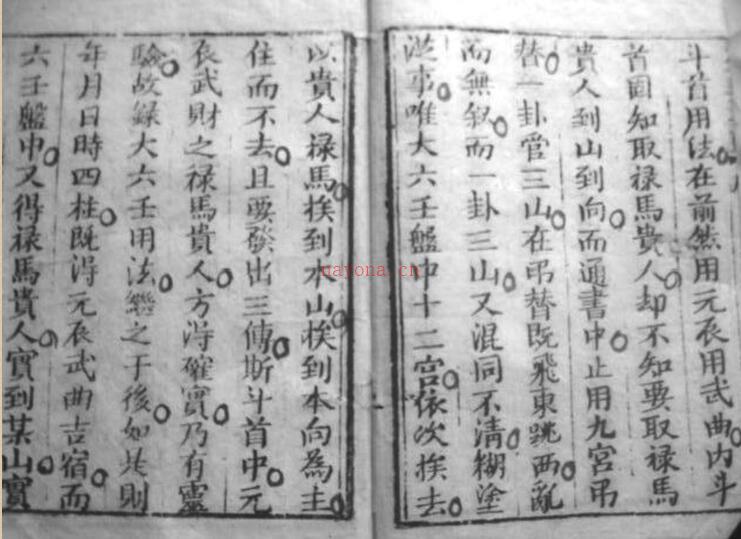 斗首用法在前然用元辰用武曲内斗
首固知取禄馬貴人却不知要取禄馬
貴人到山到向而通書中止用九宮吊
替一卦管三山在吊替既飛東跳西亂
而無叙而一卦三山又混同不清糊塗
涖事唯大六壬盤中十二宮依次挨去
以貴人禄馬挨到本山挨到本向為主
住而不去且要發出三傳斯斗首中元
辰武財之禄馬貴人方得確實乃有靈
驗故録大六壬用法繼之于後如此則
年月日時四柱既得元辰武曲吉宿而
六壬盤中又得禄馬貴人實到某山實
nayona.cn